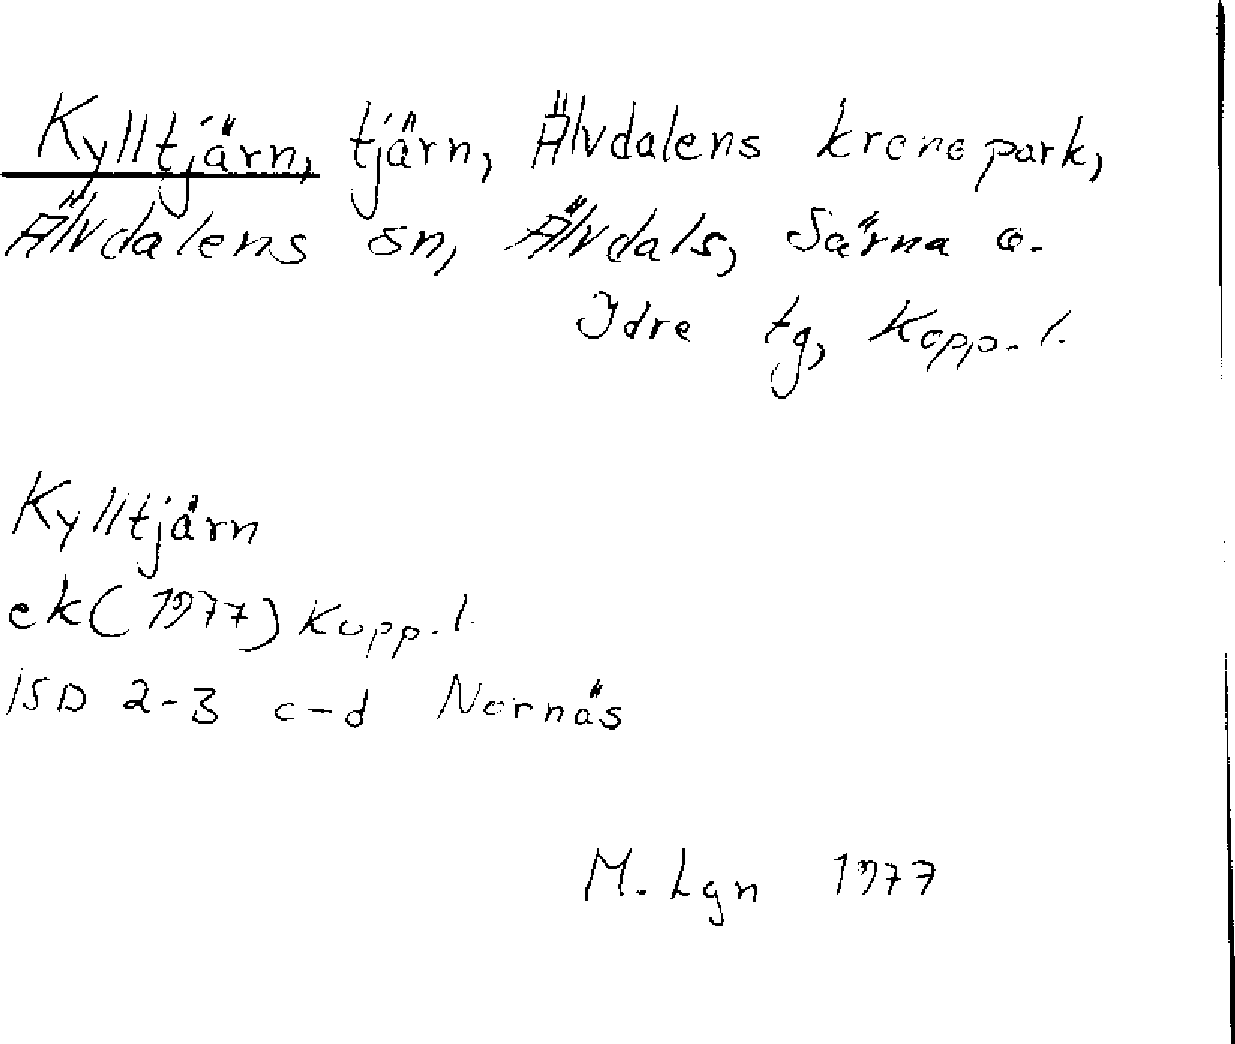 Kylltjärn, tjärn, Älvdalens kronopark,
Älvdalens sn, Älvdals, Särna o.
Idre tg, Kopp. l.
Kylltjärn
ek (1977) Kopp. l.
15D 2-3 c-d Nornäs
M. Lgn 1977